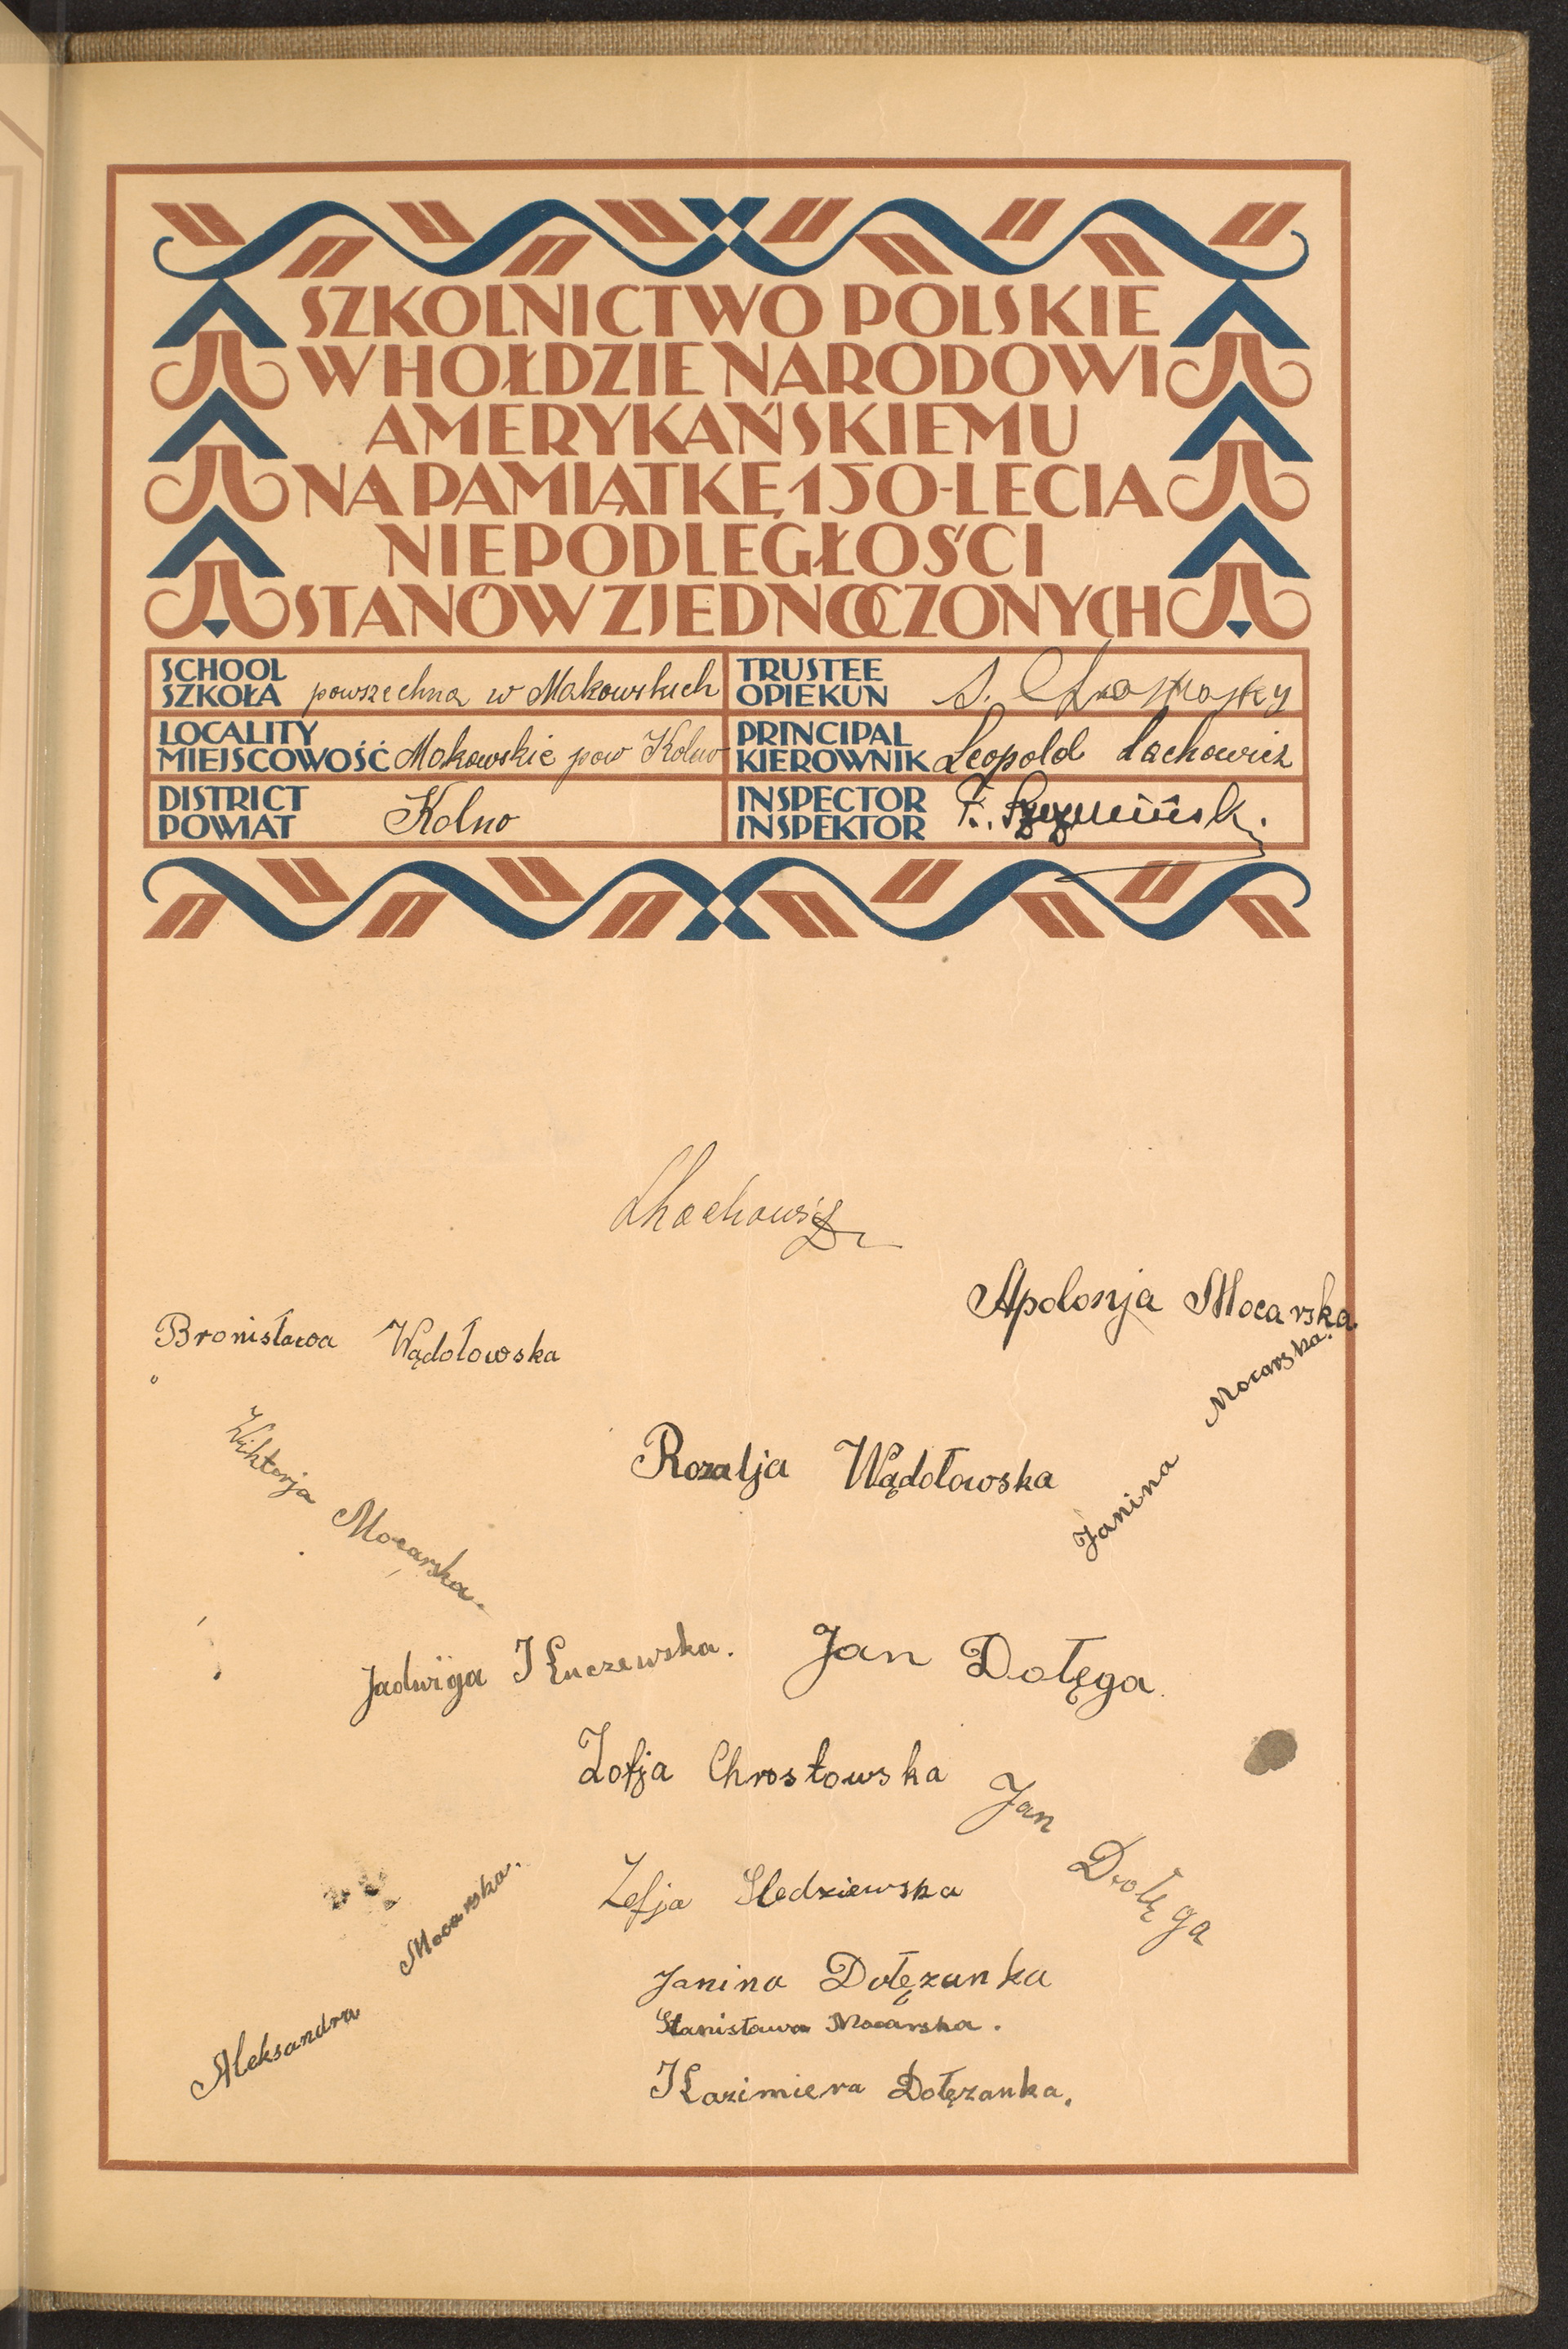 SZKOLNICTWO POLSKIE
W HOŁDZIE NARODOWI
AMERYKAŃSKIEMU
NA PAMIĄTKĘ 150-LECIA
NIEPODLEGŁOŚCI
STANÓW ZJEDNOCZONYCH
SCHOOL
SZKOŁA powszechna w Makowskich
TRUSTEE
OPIEKUN
LOCALITY
MIEJSCOWOŚĆ Makowskie pow Kolno
PRINCIPAL
KIEROWNIK Leopold Lachowicz
DISTRICT
POWIAT Kolno
INSPECTOR
INSPEKTOR
Apolonja Mocarska
Bronisława Wądołowska
Janina Mocarska.
Wiktorja Mocarska.
Rozalja Wądołowska
Jadwiga Kuczewska.
Jan Dołęga.
Zofja Chrostowska
Jan Dołęga
Zofja Sledziewska
Aleksandra Mocarska.
Janina Dołęzanka
Stanisława Mocarska.
Kazimiera Dołęzanka.